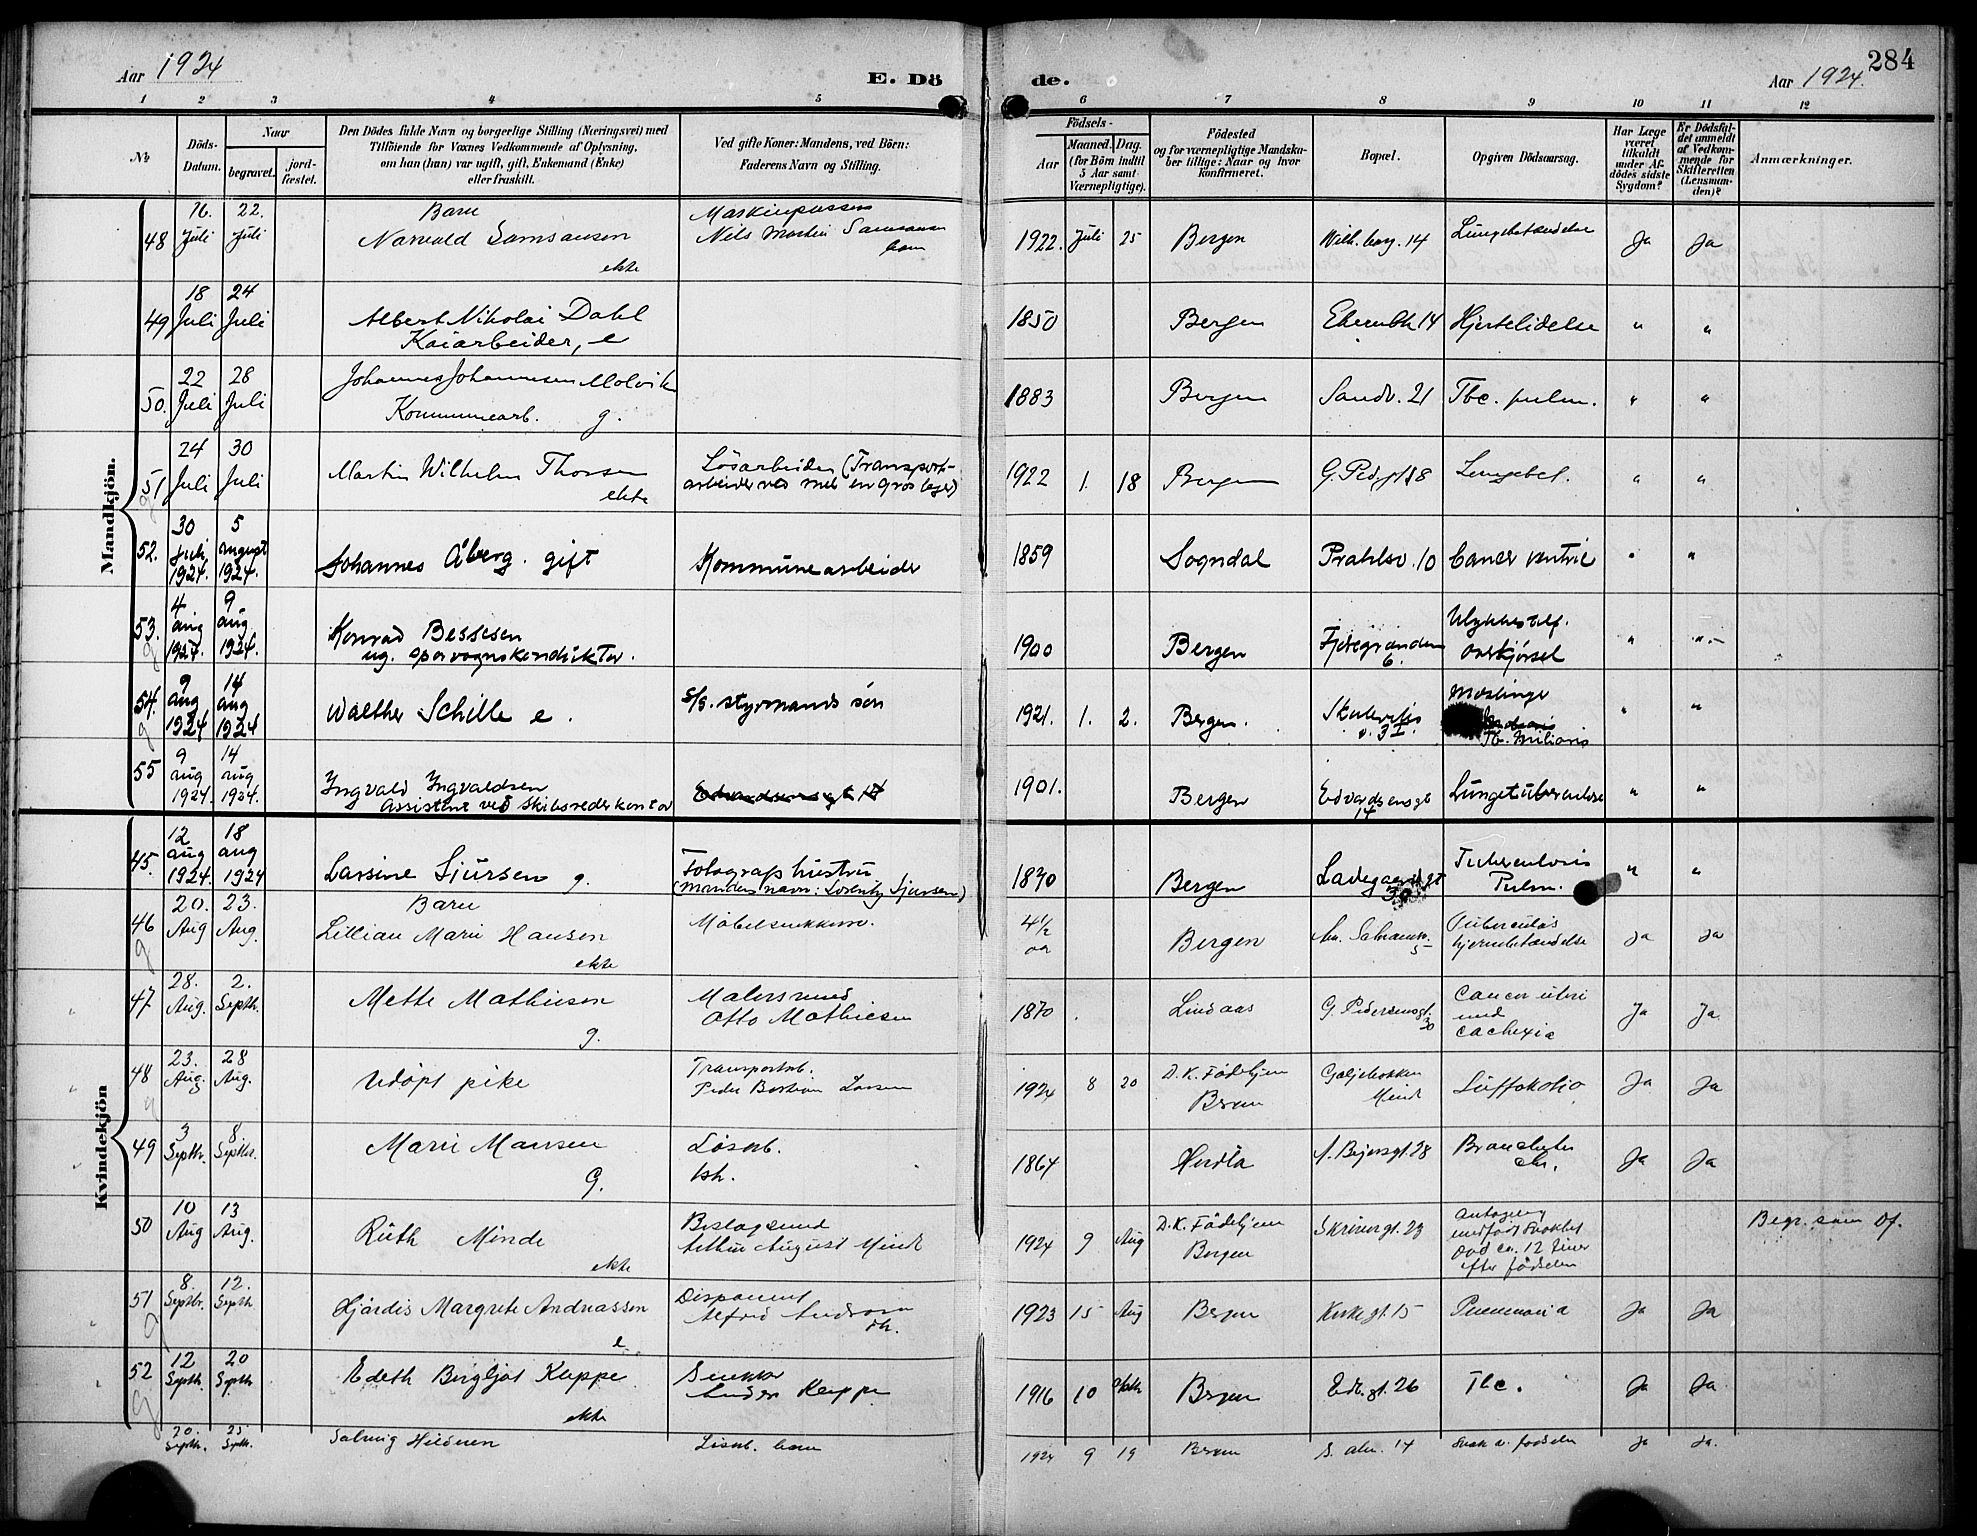 Aar 1924
E. Dö
de.
Aar 1924.
284
1 2 3 4 5 6 7 8 9 10 11 12
No
Döds-
Datum.
Naar
begravet.
jord-
fæstet.
Den Dödes fulde Navn og borgerlige Stilling (Næringsvei) med
Tilföiende for Voxnes Vedkommende af Oplysning,
om han (hun) var ugift, gift, Enkemand (Enke)
eller fraskilt.
Ved gifte Koner: Mandens, ved Börn:
Faderens Navn og Stilling.
Födsels-
Aar
Maaned. Dag.
(for Börn indtil
5 Aar samt
Værnepligtige).
Födested
og for værnepligtige Mandska-
ber tillige: Naar og hvor
konfirmeret.
Bopæl.
Opgiven Dödsaarsag.
Har Læge
været
tilkaldt
under Af-
dödes sidste
Sygdom?
Er Dödsfal-
det anmeldt
af Vedkom-
mende for
Skifteretten
(Lensman-
den)?
Anmærkninger.
Mandkjön.
48 16. Juli 22. Juli
Barn
Norvald Samsonsen
ekte
Maskinpassers
Nils Martin Samsonsen
barn
1922. Juli 25 Bergen Wilh. bg. 14 Lungebetændelse Ja Ja
49 18 Juli 24 Juli
Albert Nikolai Dahl
Kaiarbeider, e
1850 Bergen 14 Hjertelidelse " "
50. 22 Juli 28 Juli
Johannes Johannesen Molvik
Kommunearb. g.
1883 Bergen Sandv. 21 Tbc. pulm. " "
51 24 Juli 30 Juli
Martin Wilhelm Thorsen
ekte
Løsarbeider (Transport-
arbeider ved mel en gros lager)
1922 1. 18 Bergen G. Ped. gt 38 Lungebet. " "
52. 30 Juli 1924. 5 august 1924.
Johannes Åberg. gift
Kommunearbeider
1859 Sogndal Prahlsv. 10 Cancer ventric " "
53. 4 aug 1924. 9 aug 1924.
Konrad Bessesen
ug. sporvognskonduktør.
1900 Bergen Fjøsegranden 6. Ulykkestilf. overkjørsel " "
54. 9 aug 1924 14 aug 1924
Walther Schille e.
S/S. styrmands søn
1921. 1. 2. Bergen. v. 3 I. Meslinger Tb. Miliaris " "
55 9 aug 1924. 14 aug 1924.
Ingvald Ingvaldsen
Assistent ved Skibsrederkontor
1901. Bergen Edvardsensgt 14 Lungetuberculose " "
Kvindekjön
45. 12 aug 1924. 18 aug 1924
Larsine Sjursen g.
Fotografs hustru
(Mandens navn: Lorentz Sjursen)
1870 Bergen Ladegaardsgt 30 Tuberculosis Pulm. " "
46 20. Aug 23. Aug.
Barn
Lillian Marie Hansen
ekte
Møbelsnekker.
4½ aar Bergen Tuberculøs hjernebetændelse Ja Ja
47. 28. Aug. 2. Septb.
Mette Mathiesen
g.
Malersvend
Otto Mathiesen
1870 Lindaas G. Pedersensgt. 30 Cancer uteri med cachexia Ja Ja
48 23. Aug. 28 Aug.
Udøpt pike
Transportarb.
Peder Larsen
1924 8 20 D.K. Fødehjem Bergen Minde Suffokatio Ja Ja
49 3 Septbr. 8 Septbr.
Marie Mansen
G.
Løsarb.
1864 Herdla 28 Bronchitis chr. Ja Ja
50 10 Aug 13 Aug.
Ruth Minde
ekte
Beslagsmed
August Minde
1924 9 Aug D.K. Fødehjem Bergen 23 død ca. 12 timer efter fødselen
Begr. som Df.
51 8. Septbr. 12. Septb.
Hjørdis Margrete Andreassen
e.
Disponent
Alfred
1923 15 Aug Bergen Kirkegt. 15 Pneumonia Ja Ja
52 12 Septb. 20 Septb.
Edith Bergljot Kleppe
ekte
Snekker
Kleppe
1916 10 Bergen 26 Tbc. Ja Ja
20. Septb. 25 Septb.
Solveig
Løsarb. barn
1924 9 19 Bergen 14 Svak v. fødselen Ja Ja.